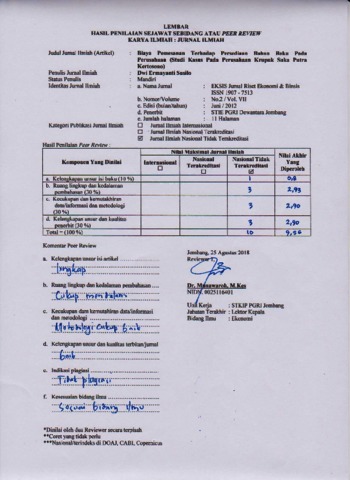 LEMBAR
HASIL PENILAIAN SEJAWAT SEBIDANG ATAU PEER REVIEW
KARYA ILMIAH : JURNAL ILMIAH
Judul Jurnal Ilmiah (Artikel) : Biaya Pemesanan Terhadap Persediaan Bahan Baku Pada
Perusahaan (Studi Kasus Pada Perusahaan Krupuk Saka Putra
Kertosono)
Penulis Jurnal Ilmiah : Dwi Ermayanti Susilo
Status Penulis : Mandiri
Identitas Jurnal Ilmiah : a. Nama Jurnal : EKSIS Jurnal Riset Ekonomi & Bisnis
ISSN :907 - 7513
b. Nomor/Volume : No.2 / Vol. VII
c. Edisi (bulan/tahun) : Juni / 2012
d. Penerbit : STIE PGRI Dewantara Jombang
e. Jumlah halaman : 11 Halaman
Kategori Publikasi Jurnal Ilmiah : ☐ Jurnal Ilmiah Internasional
☐ Jurnal Ilmiah Nasional Terakreditasi
☑ Jurnal Ilmiah Nasional Tidak Terakreditasi
Hasil Penilaian Peer Review :
Komponen Yang Dinilai
Nilai Maksimal Jurnal Ilmiah
Internasional ☐
Nasional Terakreditasi ☐
Nasional Tidak Terakreditasi ☑
Nilai Akhir Yang Diperoleh
a. Kelengkapan unsur isi buku (10 %) 1 0,8
b. Ruang lingkup dan kedalaman pembahasan (30 %) 3 2,93
c. Kecukupan dan kemutakhiran data/informasi dan metodologi (30 %) 3 2,90
d. Kelengkapan unsur dan kualitas penerbit (30 %) 3 2,90
Total = (100 %) 10
Komentar Peer Review
a. Kelengkapan unsur isi artikel
lengkap
b. Ruang lingkup dan kedalaman pembahasan
Cukup mendalam
c. Kecukupan dan kemutakhiran data/informasi
dan metodologi
Metodologi cukup baik
d. Kelengkapan unsur dan kualitas terbitan/jurnal
baik
e. Indikasi plagiasi
Tidak plagiasi
f. Kesesuaian bidang ilmu
Sesuai bidang ilmu
Jombang, 25 Agustus 2018
Reviewer
Dr. Munawaroh, M.Kes
NIDN. 0025116401
Unit Kerja : STKIP PGRI Jombang
Jabatan Terakhir : Lektor Kepala
Bidang Ilmu : Ekonomi
*Dinilai oleh dua Reviewer secara terpisah
**Coret yang tidak perlu
***Nasional/terindeks di DOAJ, CABI, Copernicus